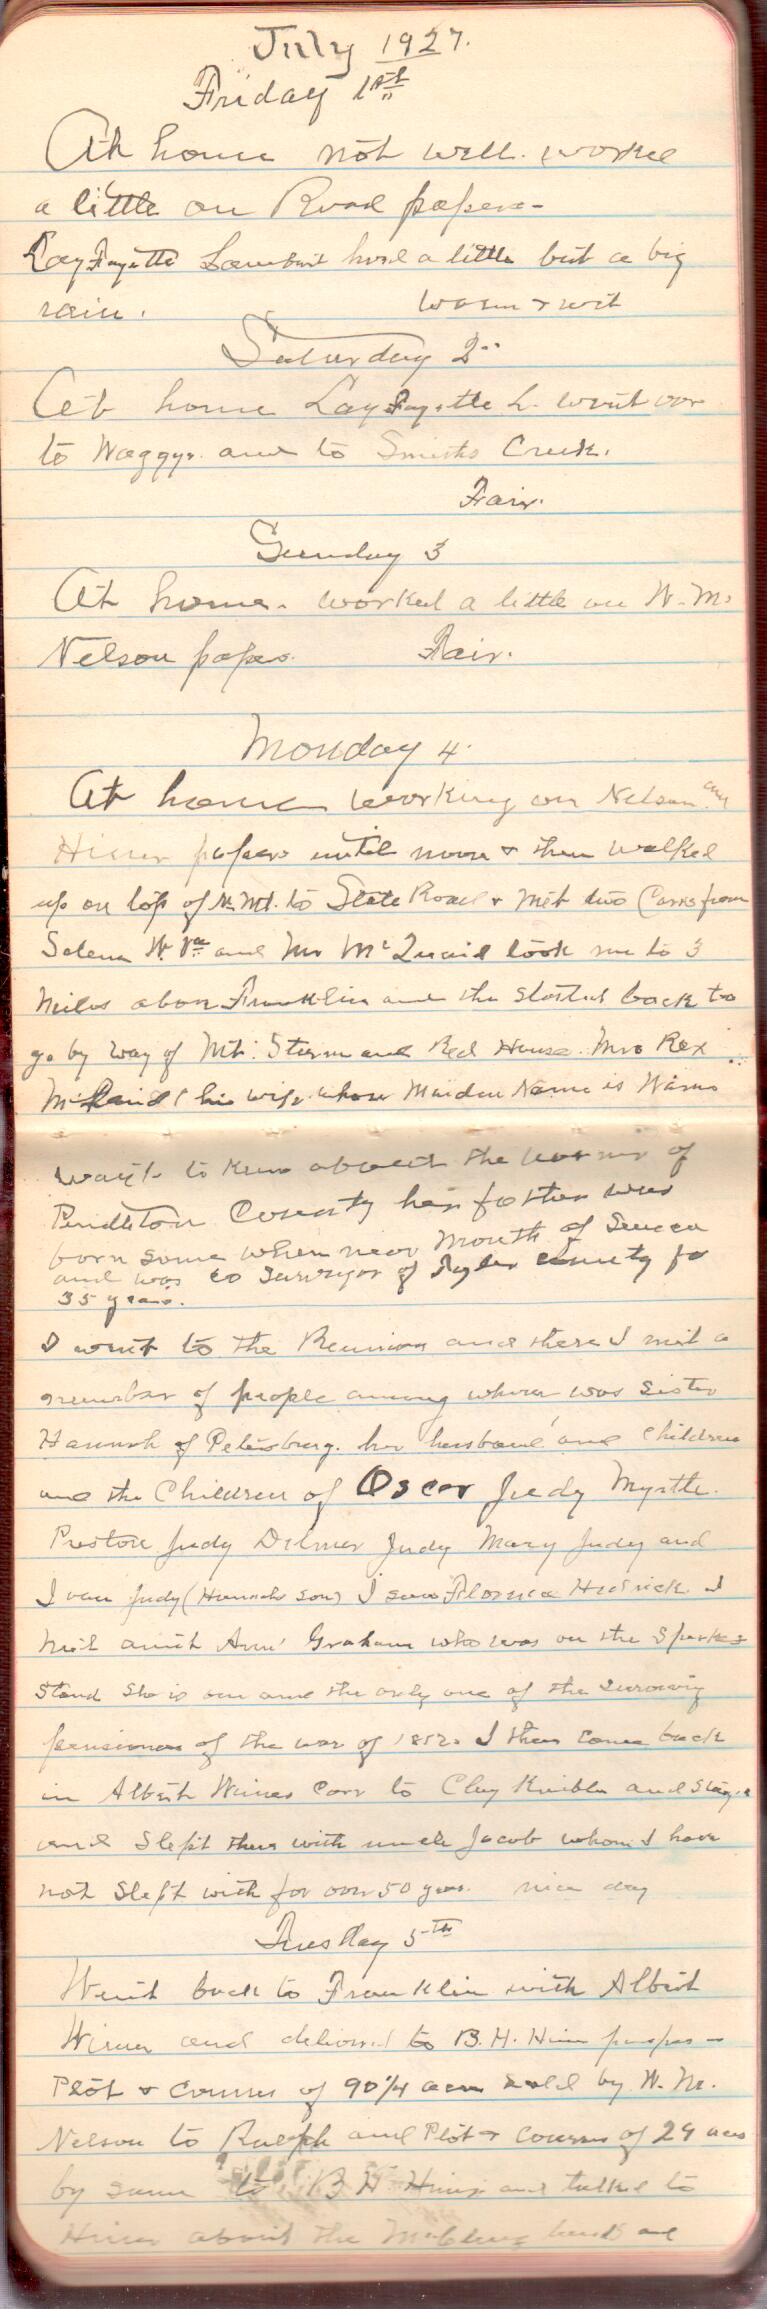 July 1927.
Friday 1st
At home not well. worked
a little on Road papers -
Lay Fayette Lambert hired a little but a big
rain. Warm & wet
Saturday 2"
At home Lay Fayette L. went over
to Waggys. and to Smiths Creek.
Fair.
Sunday 3
At home. worked a little on W. M.
Nelson papers. Fair.
Monday 4.
At home working on Nelson and
Hiner papers until noon & then walked
up on top of N. Mt. to State Road & met two Carrs from
Salem W. Va and Mr McQuaid took me to 3
Miles above Franklin and the started back to
go by way of Mt. Storm and Red House. Mrs Rex
McQuaid (his wife whose Maiden Name is
wants to know about the of
Pendleton County her father was
born some where near Mouth of Seneca
and was co surveyor of Tyler county for
35 years.
I went to the Reunion and there I met a
number of people among whom was Sister
Hannah of Petersburg. her husband and Children
and the Children of Oscar Judy Myrtle.
Preston Judy Delmer Judy Mary Judy and
Ivan Judy (Hannahs son) I saw Florence Hedrick. I
met aunt Ann Graham who was on the
Stand She is one and the only one of the surviving
pensioners of the war of 1812. I then come back
in Albert Wimers Carr to Clay Kimbles and stayed
and slept there with uncle Jacob whom I have
not slept with for over 50 years. nice day
Tuesday 5th
Went back to Franklin with Albert
Wimer and delivered to B. H. Hiner papers -
Plot & courses of 90 1/4 acres sold by W. M.
Nelson to Ralph and Plot & courses of 29 acres
by same to B H Hiner and talked to
Hiner about the McClung lands and